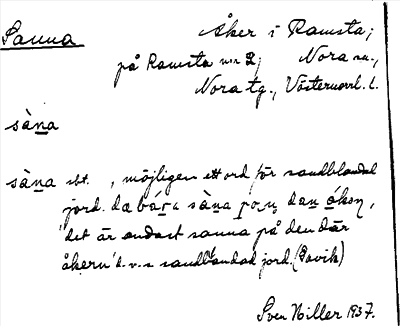 Sanna
Åker i Ramsta,
på Ramsta nr 2, Nora sn.,
Nora tg., Västernorrl. l.
sàna
sàna sbt. , möjligen ett ord för sandblandad
jord. dæ sàna dan
"det är endast sanna på den där
åkern" d.v.s sandblandad jord.
Sven Hiller 1937.